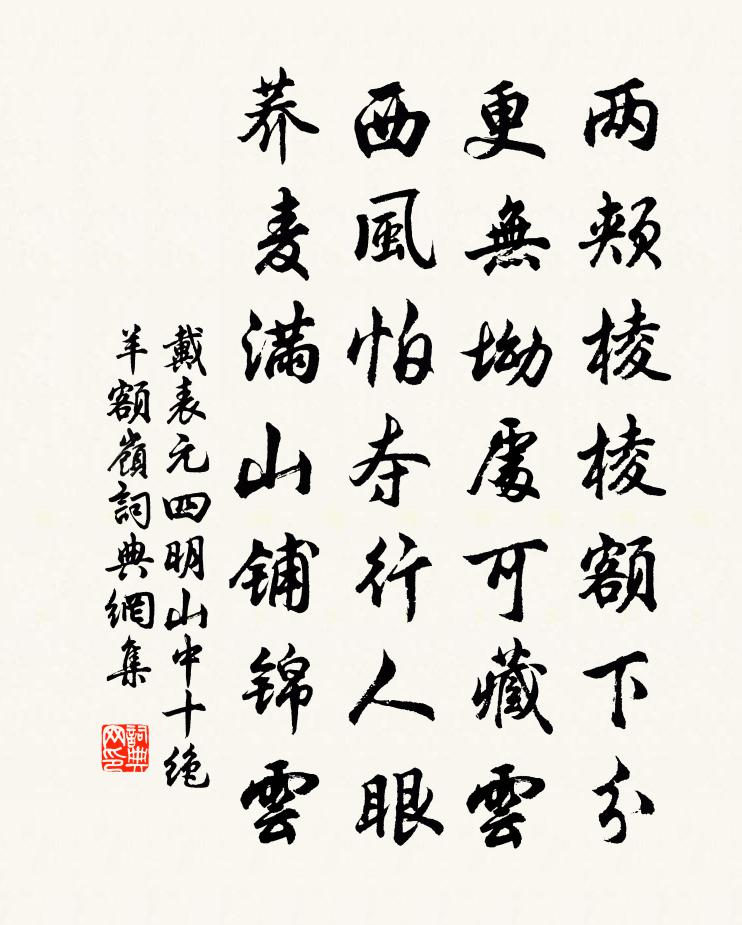 两颊棱棱额下分
更無坳處可藏雲
西風怕夺行人眼
荞麦满山铺锦雲
戴表元四明山中十绝
羊额嶺詞典網集
詞典网印